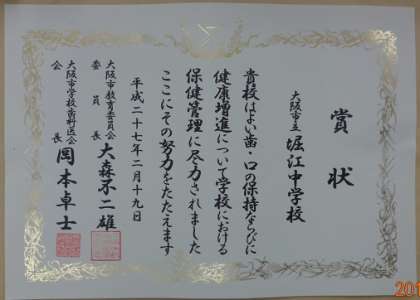 賞状
大阪市立 堀江中学校
貴校はよい歯・口の保持ならびに
健康増進について学校における
保健管理に尽力されました
ここにその努力をたたえます
平成二十七年二月十九日
大阪市教育委員会
委員長 大森不二雄
大阪市学校歯科医会
会長 岡本卓士
201